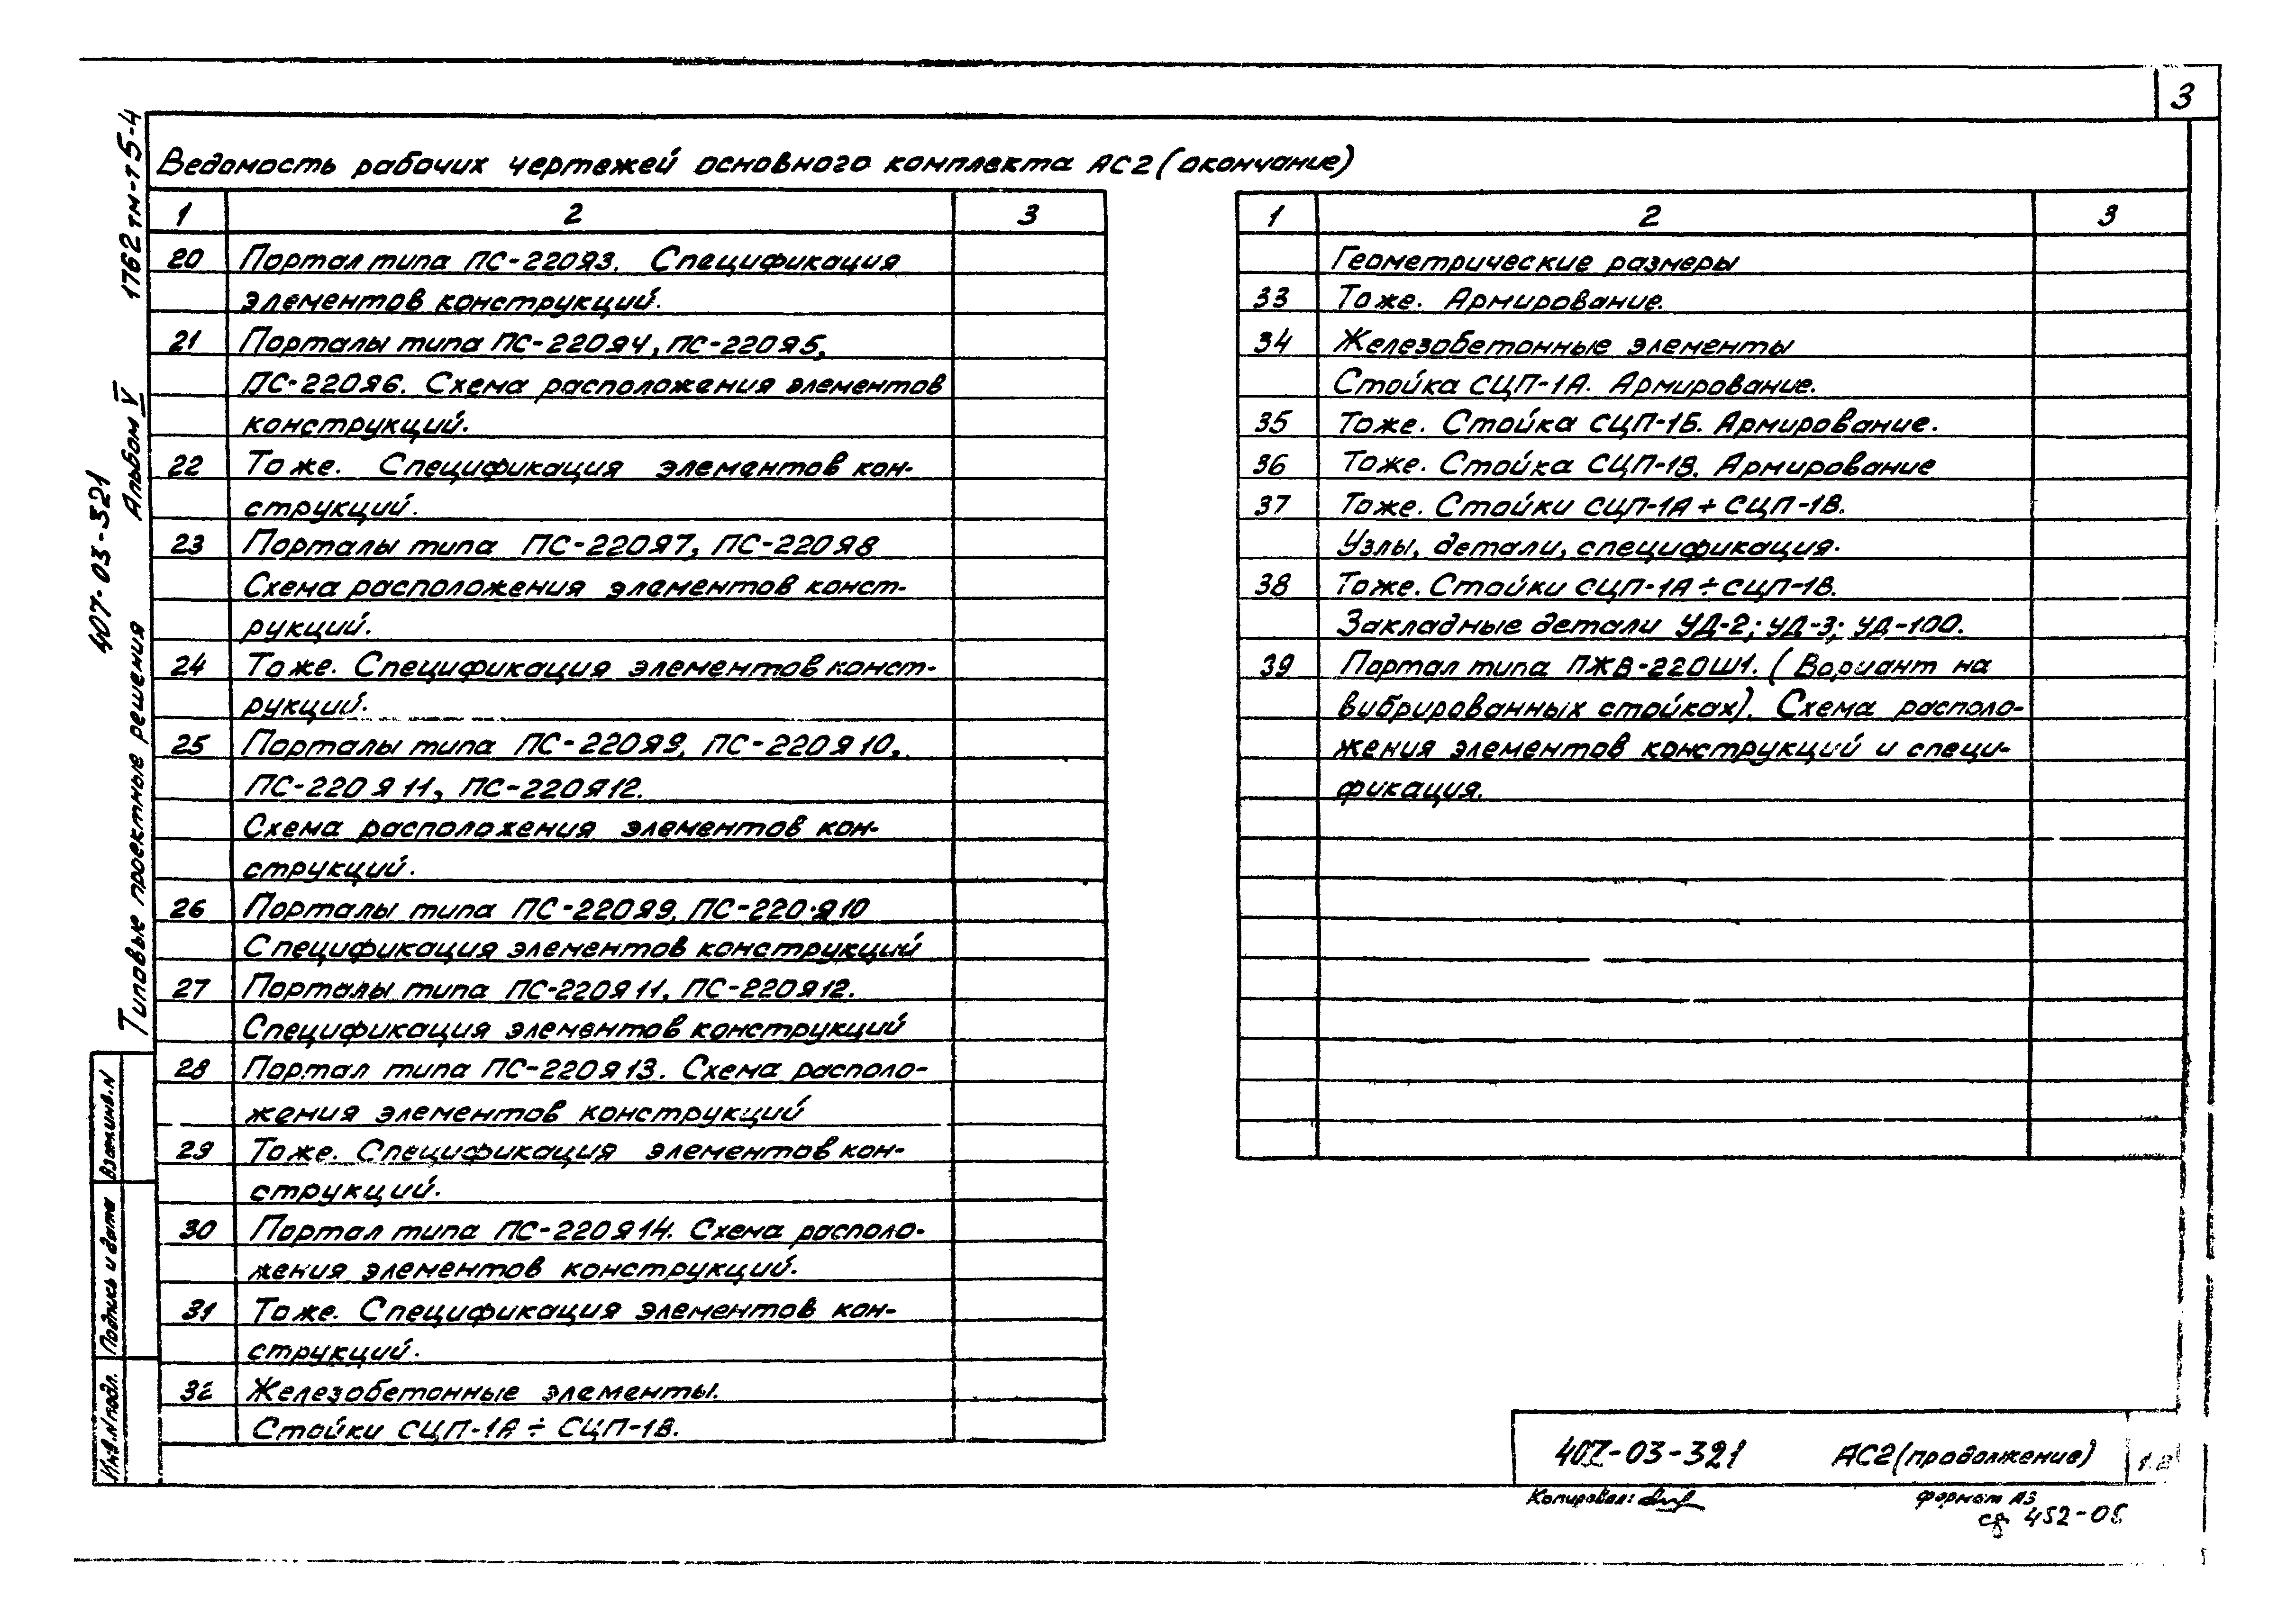 3
Ведомость рабочих чертежей основного комплекта АС2 (окончание)
1 2 3
20 Портал типа ПС-220Я3. Спецификация
элементов конструкций.
21 Порталы типа ПС-220Я4, ПС-220Я5,
ПС-220Я6. Схема расположения элементов
конструкций.
22 То же. Спецификация элементов кон-
струкций.
23 Порталы типа ПС-220Я7, ПС-220Я8
Схема расположения элементов конст-
рукций.
24 То же. Спецификация элементов конст-
рукций.
25 Порталы типа ПС-220Я9, ПС-220Я10,
ПС-220Я11, ПС-220Я12.
Схема расположения элементов кон-
струкций.
26 Порталы типа ПС-220Я9, ПС-220Я10
Спецификация элементов конструкций
27 Порталы типа ПС-220Я11, ПС-220Я12.
Спецификация элементов конструкций
28 Портал типа ПС-220Я13. Схема располо-
жения элементов конструкций
29 То же. Спецификация элементов кон-
струкций.
30 Портал типа ПС-220Я14. Схема располо-
жения элементов конструкций.
31 То же. Спецификация элементов кон-
струкций.
32 Железобетонные элементы.
Стойки СЦП-1А ÷ СЦП-1В.
1 2 3
Геометрические размеры
33 То же. Армирование.
34 Железобетонные элементы
Стойка СЦП-1А. Армирование.
35 То же. Стойка СЦП-1Б. Армирование.
36 То же. Стойка СЦП-1В. Армирование
37 То же. Стойки СЦП-1А ÷ СЦП-1В.
Узлы, детали, спецификация.
38 То же. Стойки СЦП-1А ÷ СЦП-1В.
Закладные детали УД-2; УД-3; УД-100.
39 Портал типа ПЖВ-220Ш1. (Вариант на
вибрированных стойках). Схема располо-
жения элементов конструкций и специ-
фикация.
1762тм-т5-4
407-03-321
Альбом V
Типовые проектные решения
Взам.инв.N
Подпись и дата
Инв.N подл.
407-03-321 АС2 (продолжение) 1.2
Копировал: Формат А3
сф 452-05